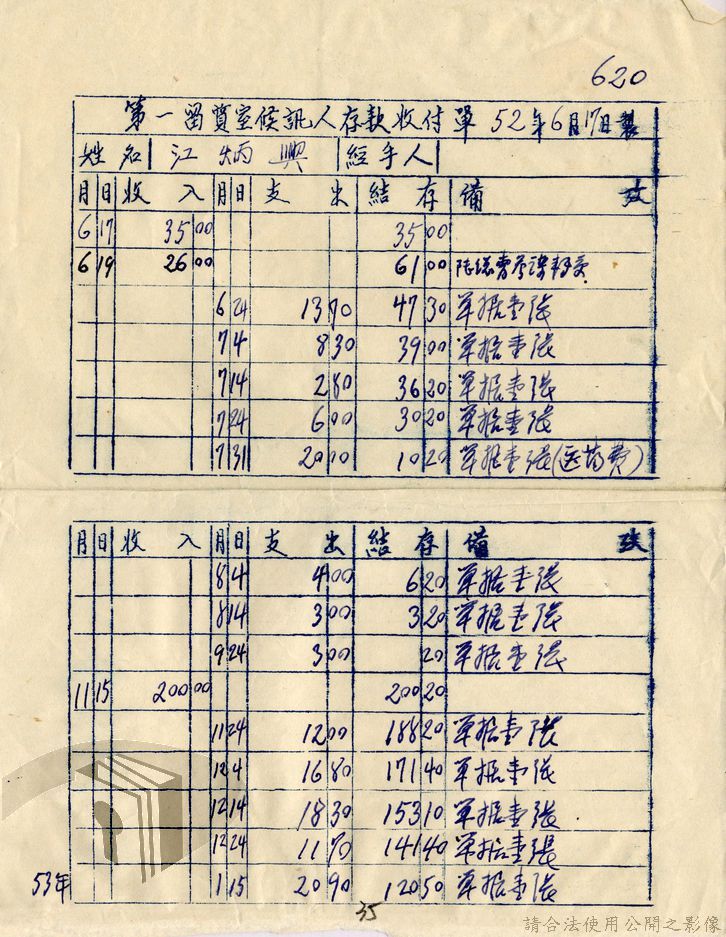 620
第一留質室候訊人存款收付單 52年6月17日製
姓名 江炳興 經手人
月 日 收入 月 日 支出 結存 備攷
6 17 35 00 35 00
6 19 26 00 61 00
6 24 13 70 47 30 單据壹張
7 4 8 30 39 00 單据壹張
7 14 2 80 36 20 單据壹張
7 24 6 00 30 20 單据壹張
7 31 20 00 10 20 單据壹張(医葯費)
月 日 收入 月 日 支出 結存 備攷
8 4 4 00 6 20 單据壹張
8 14 3 00 3 20 單据壹張
9 24 3 00 20 單据壹張
11 15 200 00 200 20
11 24 12 00 188 20 單据壹張
12 4 16 80 171 40 單据壹張
12 14 18 30 153 10 單据壹張
12 24 11 70 141 40 單据壹張
53年 1 15 20 90 120 50 單据壹張
35
請合法使用公開之影像